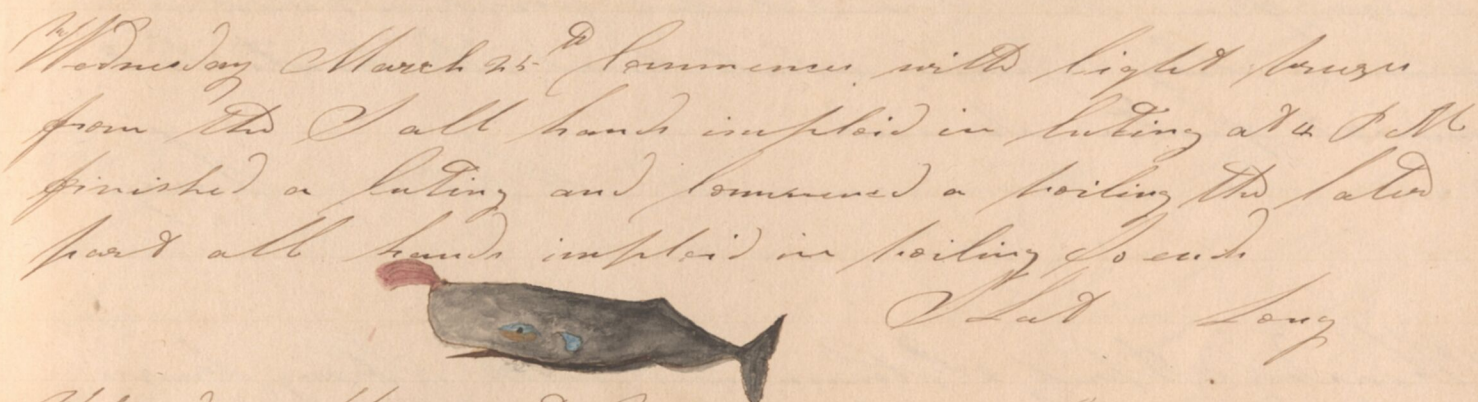 Wednesday March 25th Commences with light breeze
from the S all hands imploid in cuting at 4 P M
finished a cuting and commenced a boiling the later
part all hands imploid in boiling So ends
S Lat Long